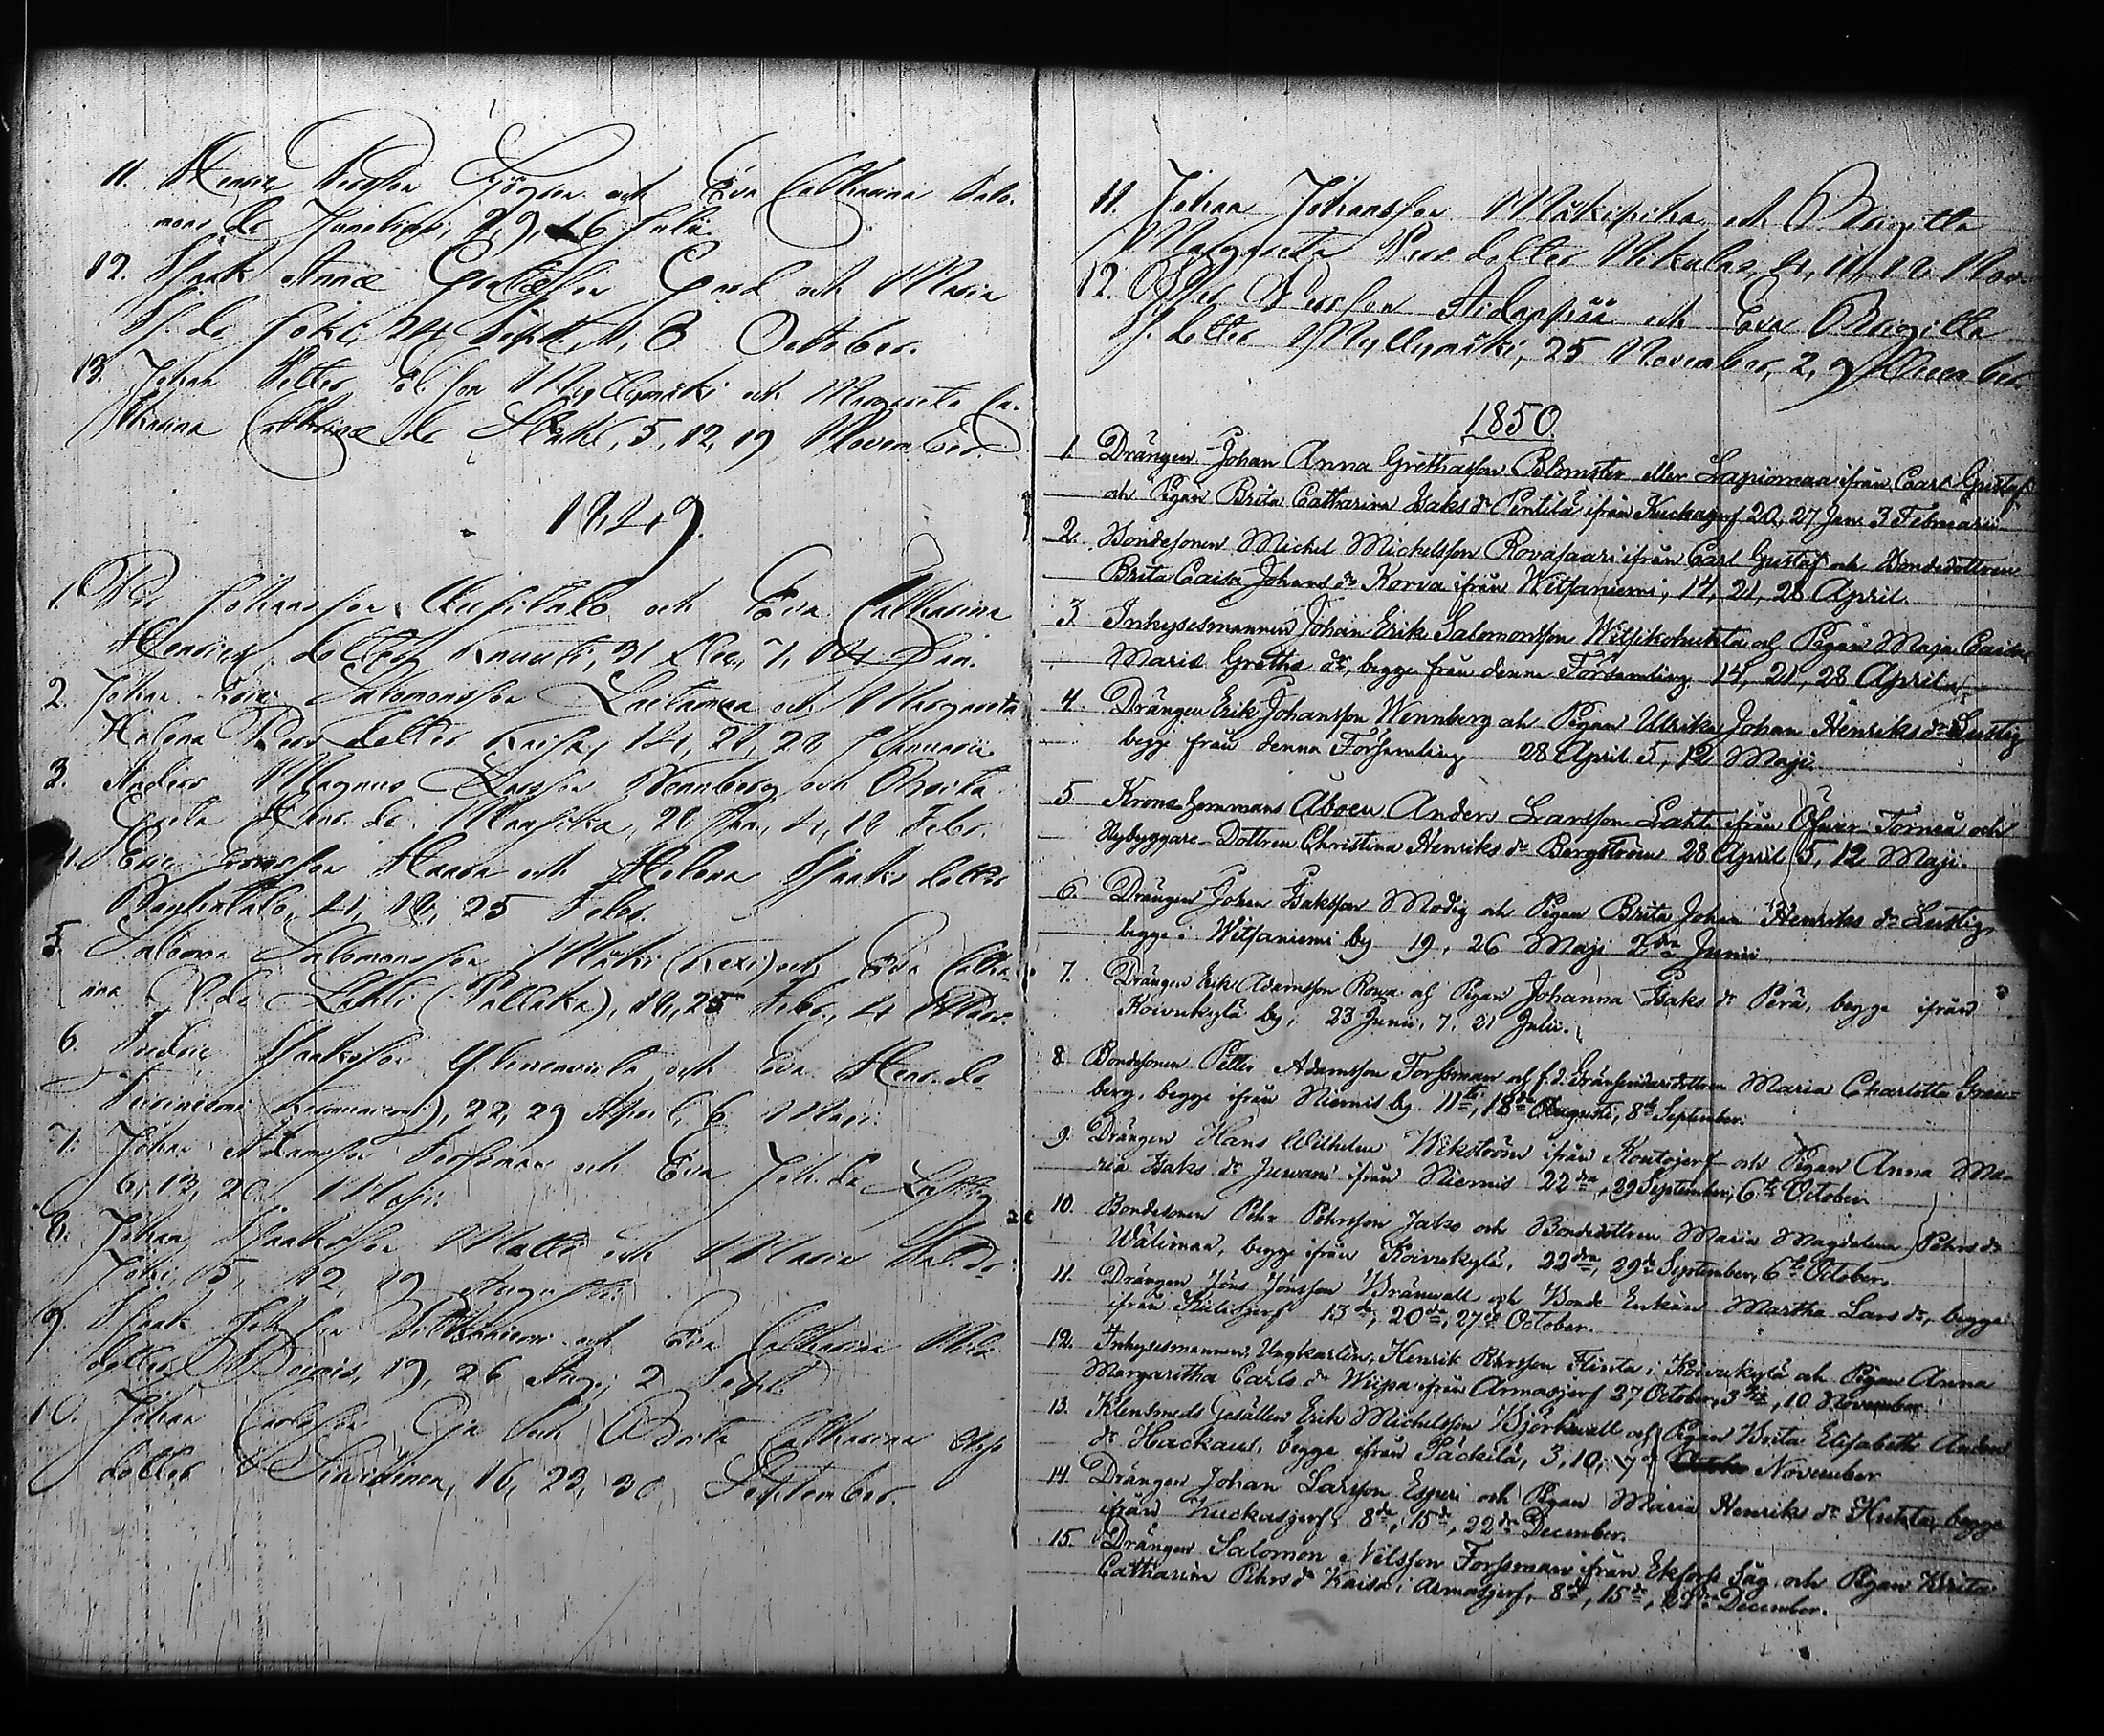 11. Henric Persson och Eva Catharina Salo-
mons dr 2, 9, 16 Julii.
12. Isaak Annæ och Maria
Is. dr Joki, 24 Sept., 1, 8 October.
13. Johan Petter Ol. son Myllymäki och Margareta Ca-
tharina dr 5, 12, 19 November.
1849.
1. Per Johansson och Eva Catharina
Henrics dotter Knuuti, 31 Dec., 7, 14 Jan.
2. Johan Eric Salomonsson och Margareta
Helena Pers dotter Kaisa, 14, 21, 28 Januarii.
3. Anders Magnus Larsson Wennberg och
Greta Henr. dr Mansikka, 28 Jan., 4, 18 Febr.
4. Eric Ericsson och Helena Isaaks dotter
4, 18, 25 Febr.
5. Salomon Salomonsson Mäki (Kexi) och Eva Catha-
rina P. dr Lahti (Pallaka), 18, 25 Febr., 4 Mars.
6. Fredric Isaaksson och Eva Henr. dr
22, 29 April, 6 Maji.
7. Johan Adamsson Forssman och Eva Joh. dr
6, 13, 20 Maji.
8. Johan Isaaksson Matti och Maria Sal. dr
Joki, 5, 12, 19 Augusti.
9. Isaak och Eva Catharina Nils
dotter 19, 26 Aug., 2 Sept.
10. Johan Carlsson Oja och Brita Catharina
dotter 16, 23, 30 September.
11. Johan Johansson och Brigitta
Margareta Pers dotter Nikulas, 4, 11, 18 Nov.
12. Per Persson Aidanpää och Eva Brigitta
J. dotter Myllymäki, 25 November, 2, 9 December.
1850.
1 Drängen Johan Anna Grethasson Blomster eller Lapiomaa ifrån Carl Gustaf
och Pigan Brita Catharina Isaks dr Pentilä ifrån Kuckasjerf 20, 27 Jan. 3 Februarii
2. Bondesonen Michel Michelsson Rovasaari ifrån Carl Gustaf och Bondedottren
Brita Caisa Johans dr Korva ifrån Witsaniemi, 14, 21, 28 April.
3 Inhysesmannen Johan Erik Salomonsson och Pigan Maja Caisa
Mariæ Grethæ dr, begge från denna Församling 14, 21, 28 April
4. Drängen Erik Johansson Wennberg och Pigan Ulrika Johan Henriks dr Lustig
begge från denna Församling 28 April 5, 12 Maji.
5 Kronohemmans Åboen Anders Larsson Lahti ifrån Öfver Torneå och
Nybyggare-Dottren Christina Henriks dr Bergström 28 April 5, 12 Maji.
6. Drängen Johan Isaksson Modig och Pigan Brita Johan Henriks dr Lustig,
begge i Witsaniemi by 19, 26 Maji 2dra Junii
7. Drängen Erik Adamsson Rova och Pigan Johanna Isaks dr Perä, begge ifrån
Koivukylä by; 23 Junii, 7, 21 Julii.
8 Bondesonen Petter Adamsson Forssman och f.d. Maria Charlotta
berg, begge ifrån Niemis by. 11te, 18de Augusti, 8de September.
9. Drängen Hans Wilhelm Wikström ifrån Koutojerf och Pigan Anna Ma-
ria Isaks dr Juwani ifrån Niemis 22dra, 29 September, 6te October
10. Bondesonen Pehr Pehrsson Jako och Bondedottren Maria Magdalena Pehrs dr
Wälimaa, begge ifrån Koivukylä, 22dra, 29de September, 6te October.
11. Drängen Jöns Jönsson Brännvall och Bonde Enkan Martha Lars dr, begge
ifrån 13de, 20de, 27de October.
12. Inhysesmannen, Ungkarlen, Henrik Pehrsson i Koivukylä och Pigan Anna
Margaritha Carls dr Wiipa ifrån Armasjerf 27 October, 3dje, 10 November
13. Klensmeds Gesällen Erik Michelsson Björkwall och Pigan Brita Elisabeth Anders
dr begge ifrån Päckilä, 3, 10, 17 November
14. Drängen Johan Larsson Esperi och Pigan Maria Henriks dr Huhta, begge
ifrån Kuckasjerf, 8de, 15de, 22dra December.
15. Drängen Salomon Nilsson Forssman ifrån Ekfors Såg, och Pigan Brita
Catharina Pehrs dr Kaisa i Armasjerf, 8de, 15de, 22dra December.